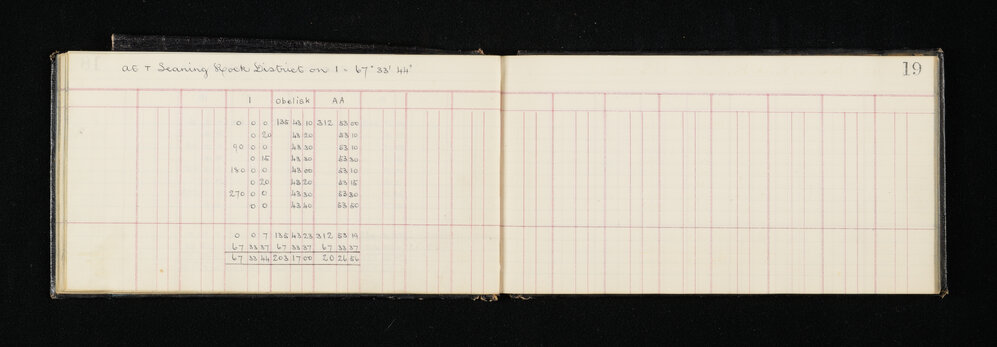 19
at T Leaning Rock District on I - 67° 33' 44"
I Obelisk AA
0 0 0 135 43 10 312 53 00
0 20 43 20 53 10
90 0 0 43 30 53 10
0 15 43 30 53 30
180 0 0 43 00 53 10
0 20 43 20 53 15
270 0 0 43 30 53 30
0 0 43 40 53 50
0 0 7 135 43 23 312 53 19
67 33 37 67 33 37 67 33 37
67 33 44 203 17 00 20 26 56